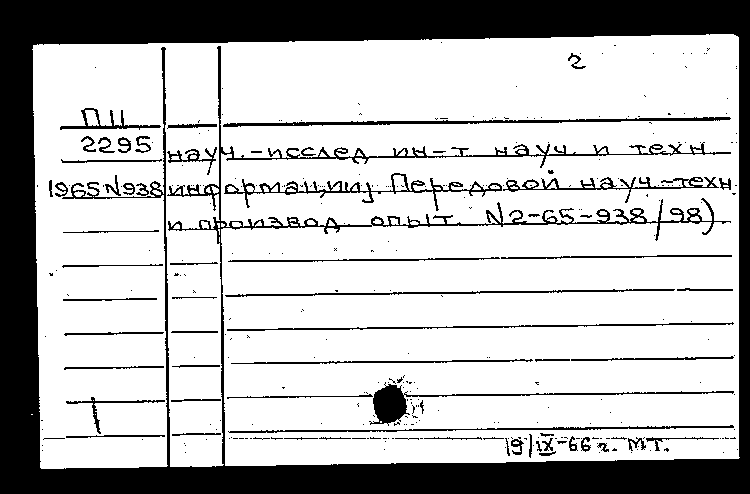 2
П11
2295 науч.-исслед ин-т науч. и техн
1965 N938 информации). Передовой науч.-техн
и производ. опыт. N2-65-938/98).
19/IX-66 г. МТ.